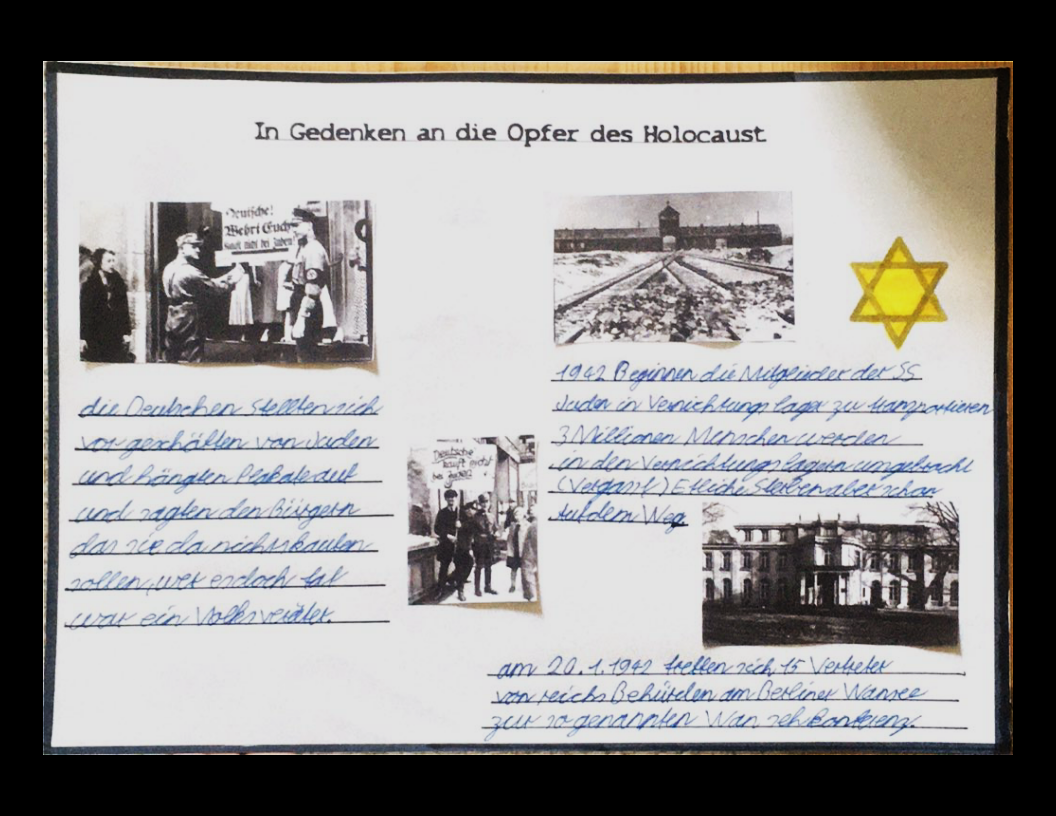 In Gedenken an die Opfer des Holocaust
Deutsche!
Wehrt Euch
kauft nicht bei Juden!
die Deutschen stellten sich
vor geschäften von Juden
und hängten Plakate auf
und sagten den Bürgern
das sie da nichts kaufen
sollen, wer es doch tat
war ein Volksverräter.
Deutsche
kauft nicht
bei Juden
1942 Beginnen die Mitglieder der SS
Juden in Vernichtungslager zu tranzportieren
3 Millionen Menschen werden
in den Vernichtungslagern umgebracht
(Vergast) Etliche Sterben aber schon
auf dem Weg
am 20.1.1942 treffen sich 15 Vertreter
von reichs Behürden am Berliner Wansee
zur so genannten Wan seh konferenz.